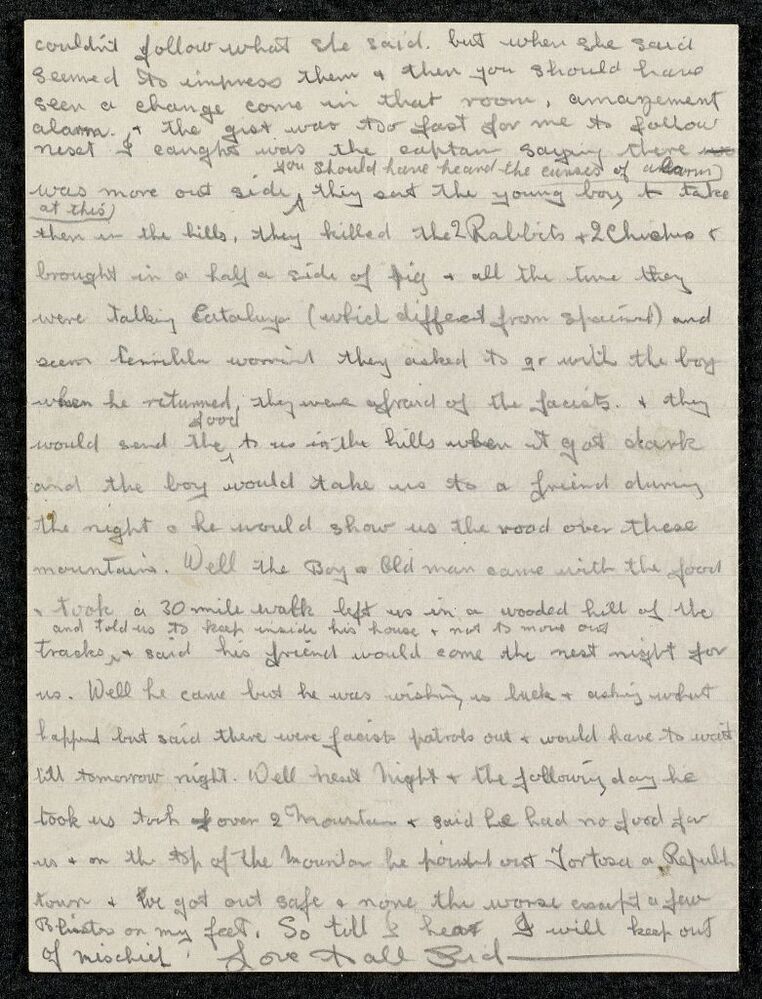 couldn't follow what she said. but when she said
seemed to impress them + then you should have
seen a change come in that room, amazement
alarm. + the gist was too fast for me to follow
nest I caught was the captain saying there
you should have heard the curses of alarm)
was more out side, they sent the young boy to take
at this)
then in the hills, they killed the 2 Rabbits + 2 Chickes &
brought in a half a side of pig + all the time they
were talking (which different from spainist) and
seem terrible they asked to go with the boy
when he returned, they were afraid of the facists. + they
food
would send the to us in the hills when it got dark
and the boy would take us to a friend during
the night & he would show us the road over these
mountains. Well the Boy & Old man came with the food
+ took a 30 mile walk left us in a wooded hill of the
and told us to keep inside his house + not to move out
tracks, + said his friend would come the nest night for
us. Well he came but he was wishing us luck + asking what
happend but said there were facists patrols out + would have to wait
till tomorrow night. Well nest night + the following day he
took us over 2 Mountain + said he had no food for
us + on the top of the Mountan he out Tortosa a
town + We got out safe + none the worse except a few
Blisters on my feet. So till I hear I will keep out
of mischief. Love to all Sid